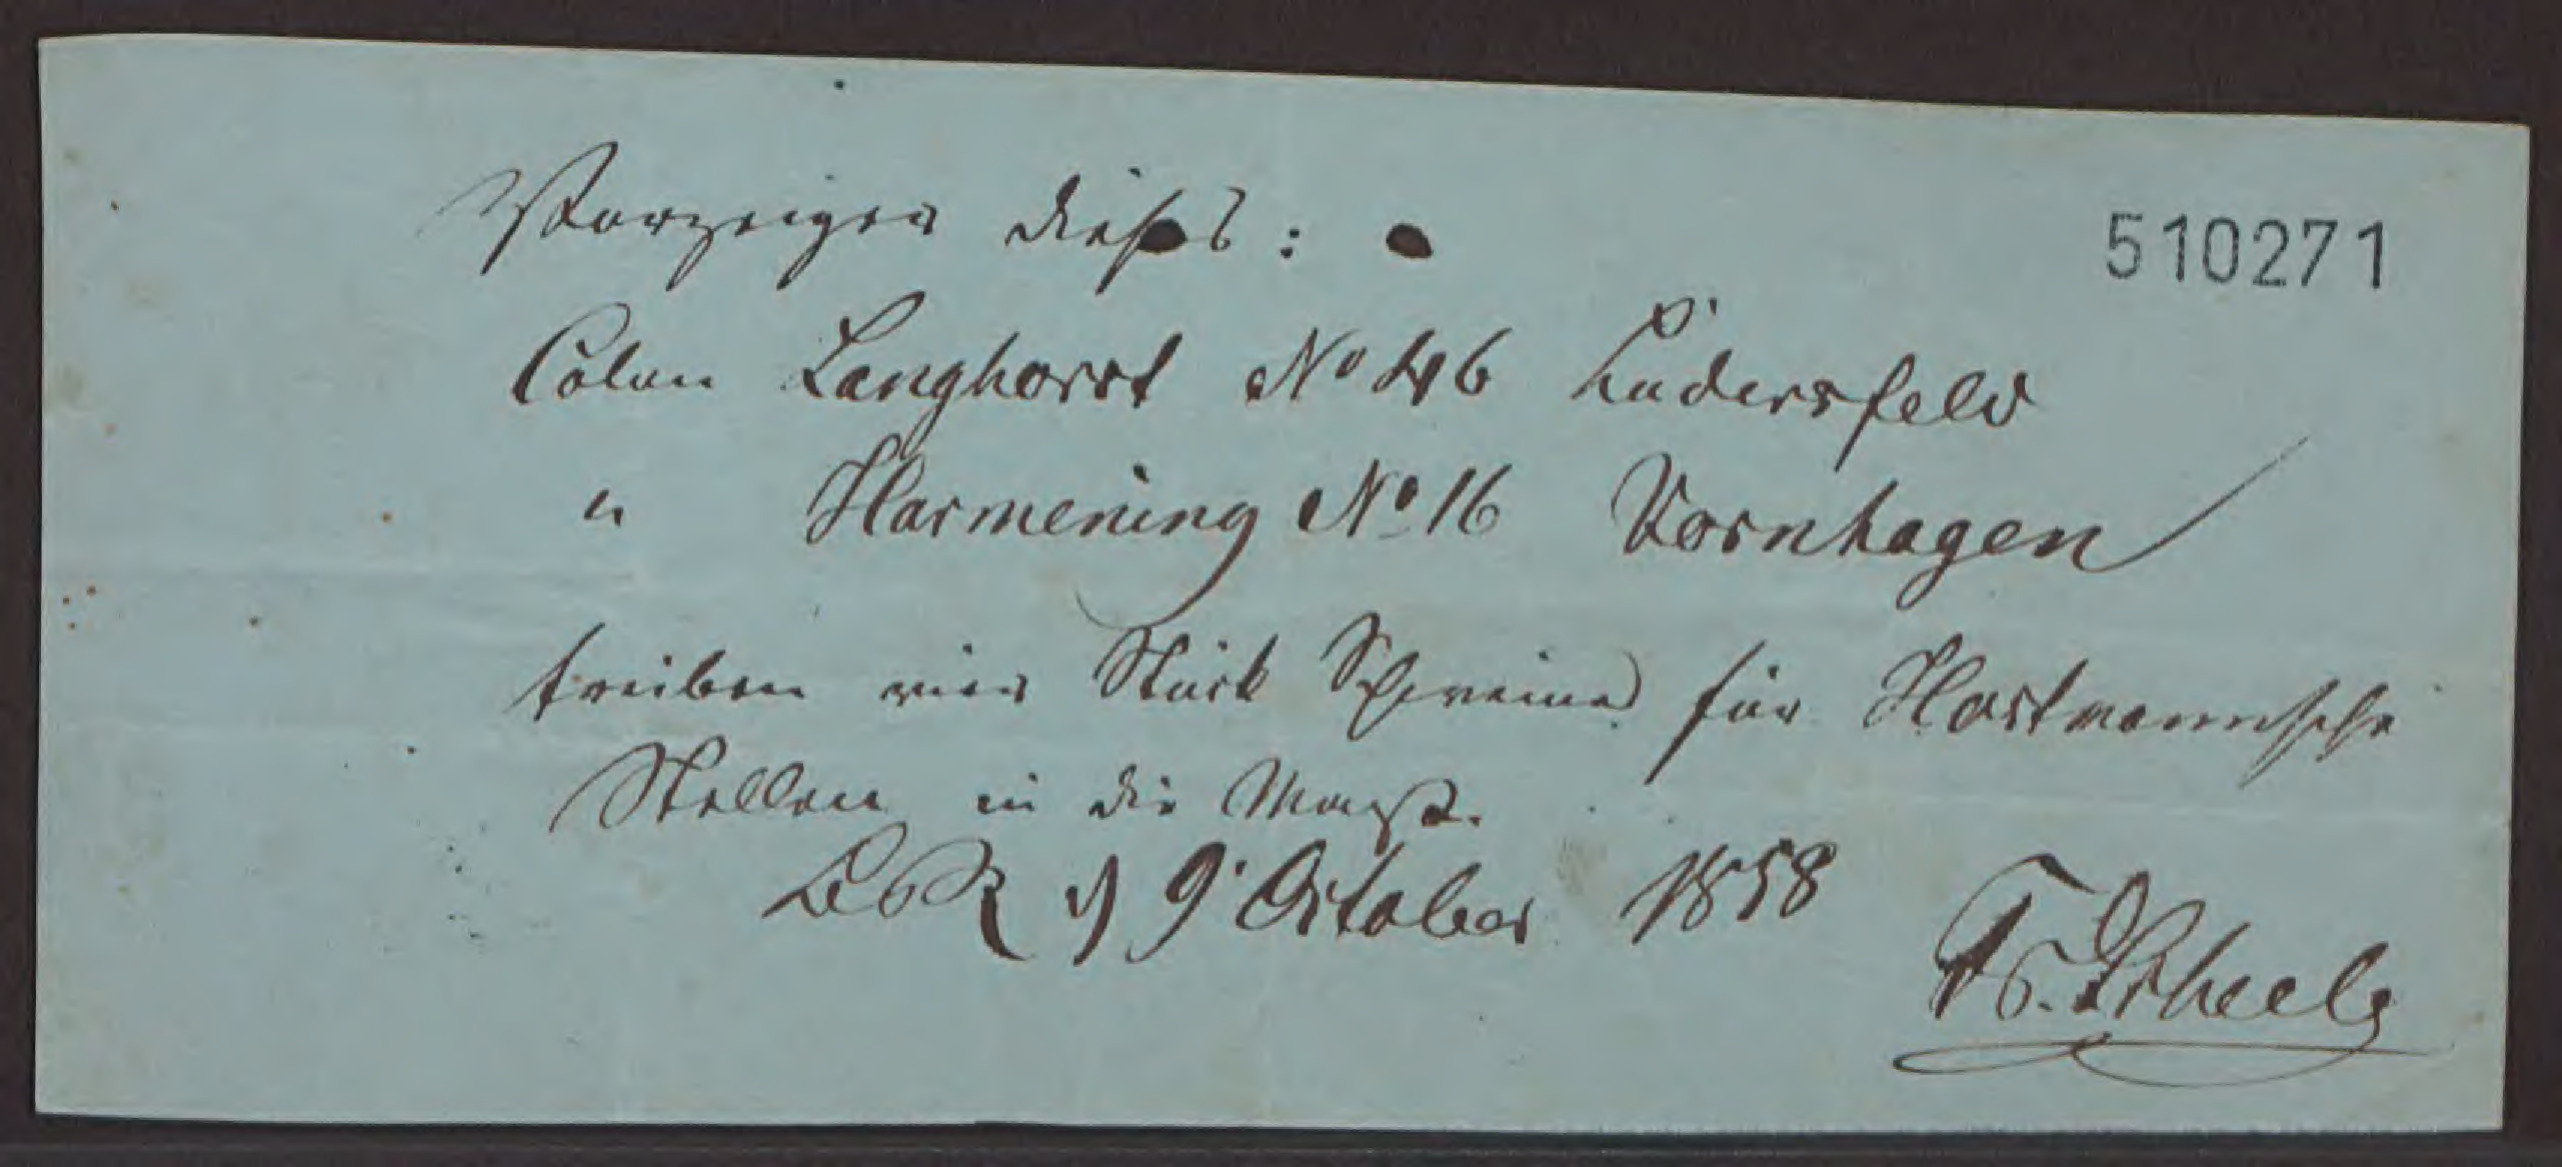 Vorzeiger dieses:
510271
Colon Langhorst No 46 Lüdersfeld
" Harmening No 16 Vornhagen
treiben vier Stück Schweine für Hartmannsche
Stellen in die Mast.
d 9' October 1858
Scheele